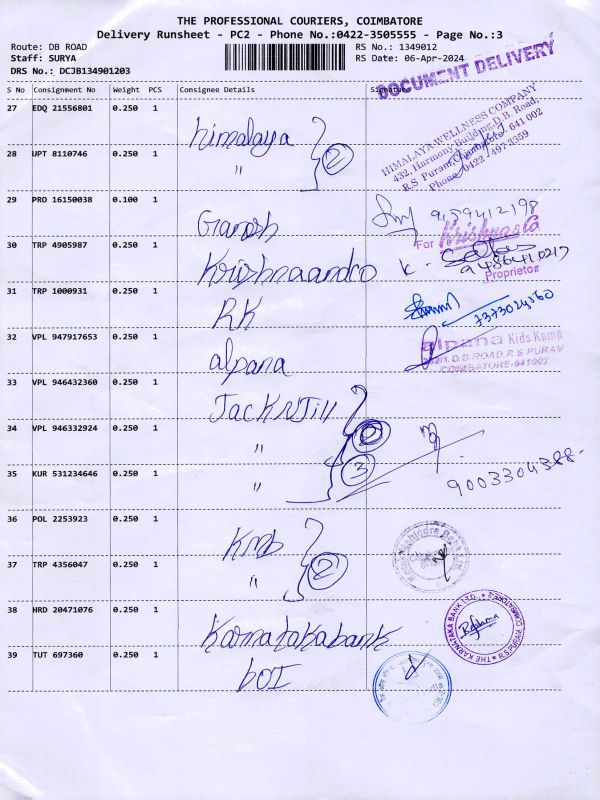 THE PROFESSIONAL COURIERS, COIMBATORE
Delivery Runsheet - PC2 - Phone No.:0422-3505555 - Page No.:3
Route: DB ROAD
Staff: SURYA
DRS No.: DCJB134901203
RS No.: 1349012
RS Date: 06-Apr-2024
DOCUMENT DELIVERY
S No Consignment No Weight PCS Consignee Details Signature
27 EDQ 21556801 0.250 1 himalaya
HIMALAYA WELLNESS COMPANY
432, Harmony Building, D.B. Road,
R.S Puram, Coimbatore-641 002
Phone: 0422
28 UPT 8110746 0.250 1 " 2
29 PRO 16150038 0.100 1 Ganesh 9159412198
30 TRP 4905987 0.250 1 Krishnaandco
For Krishna & Co
Proprietor
31 TRP 1000931 0.250 1 RK
32 VPL 947917653 0.250 1 alpana
alpana Kids Kamp
D.B. ROAD, R S PURAM
COIMBATORE-641002
33 VPL 946432360 0.250 1 JackNJill
34 VPL 946332924 0.250 1 "
35 KUR 531234646 0.250 1 " 3
36 POL 2253923 0.250 1 kmb
37 TRP 4356047 0.250 1 " 2
38 HRD 20471076 0.250 1 Karnatakabank
THE KARNATAKA BANK LTD.,
R.S.PURAM, COIMBATORE-2
39 TUT 697360 0.250 1 BOI